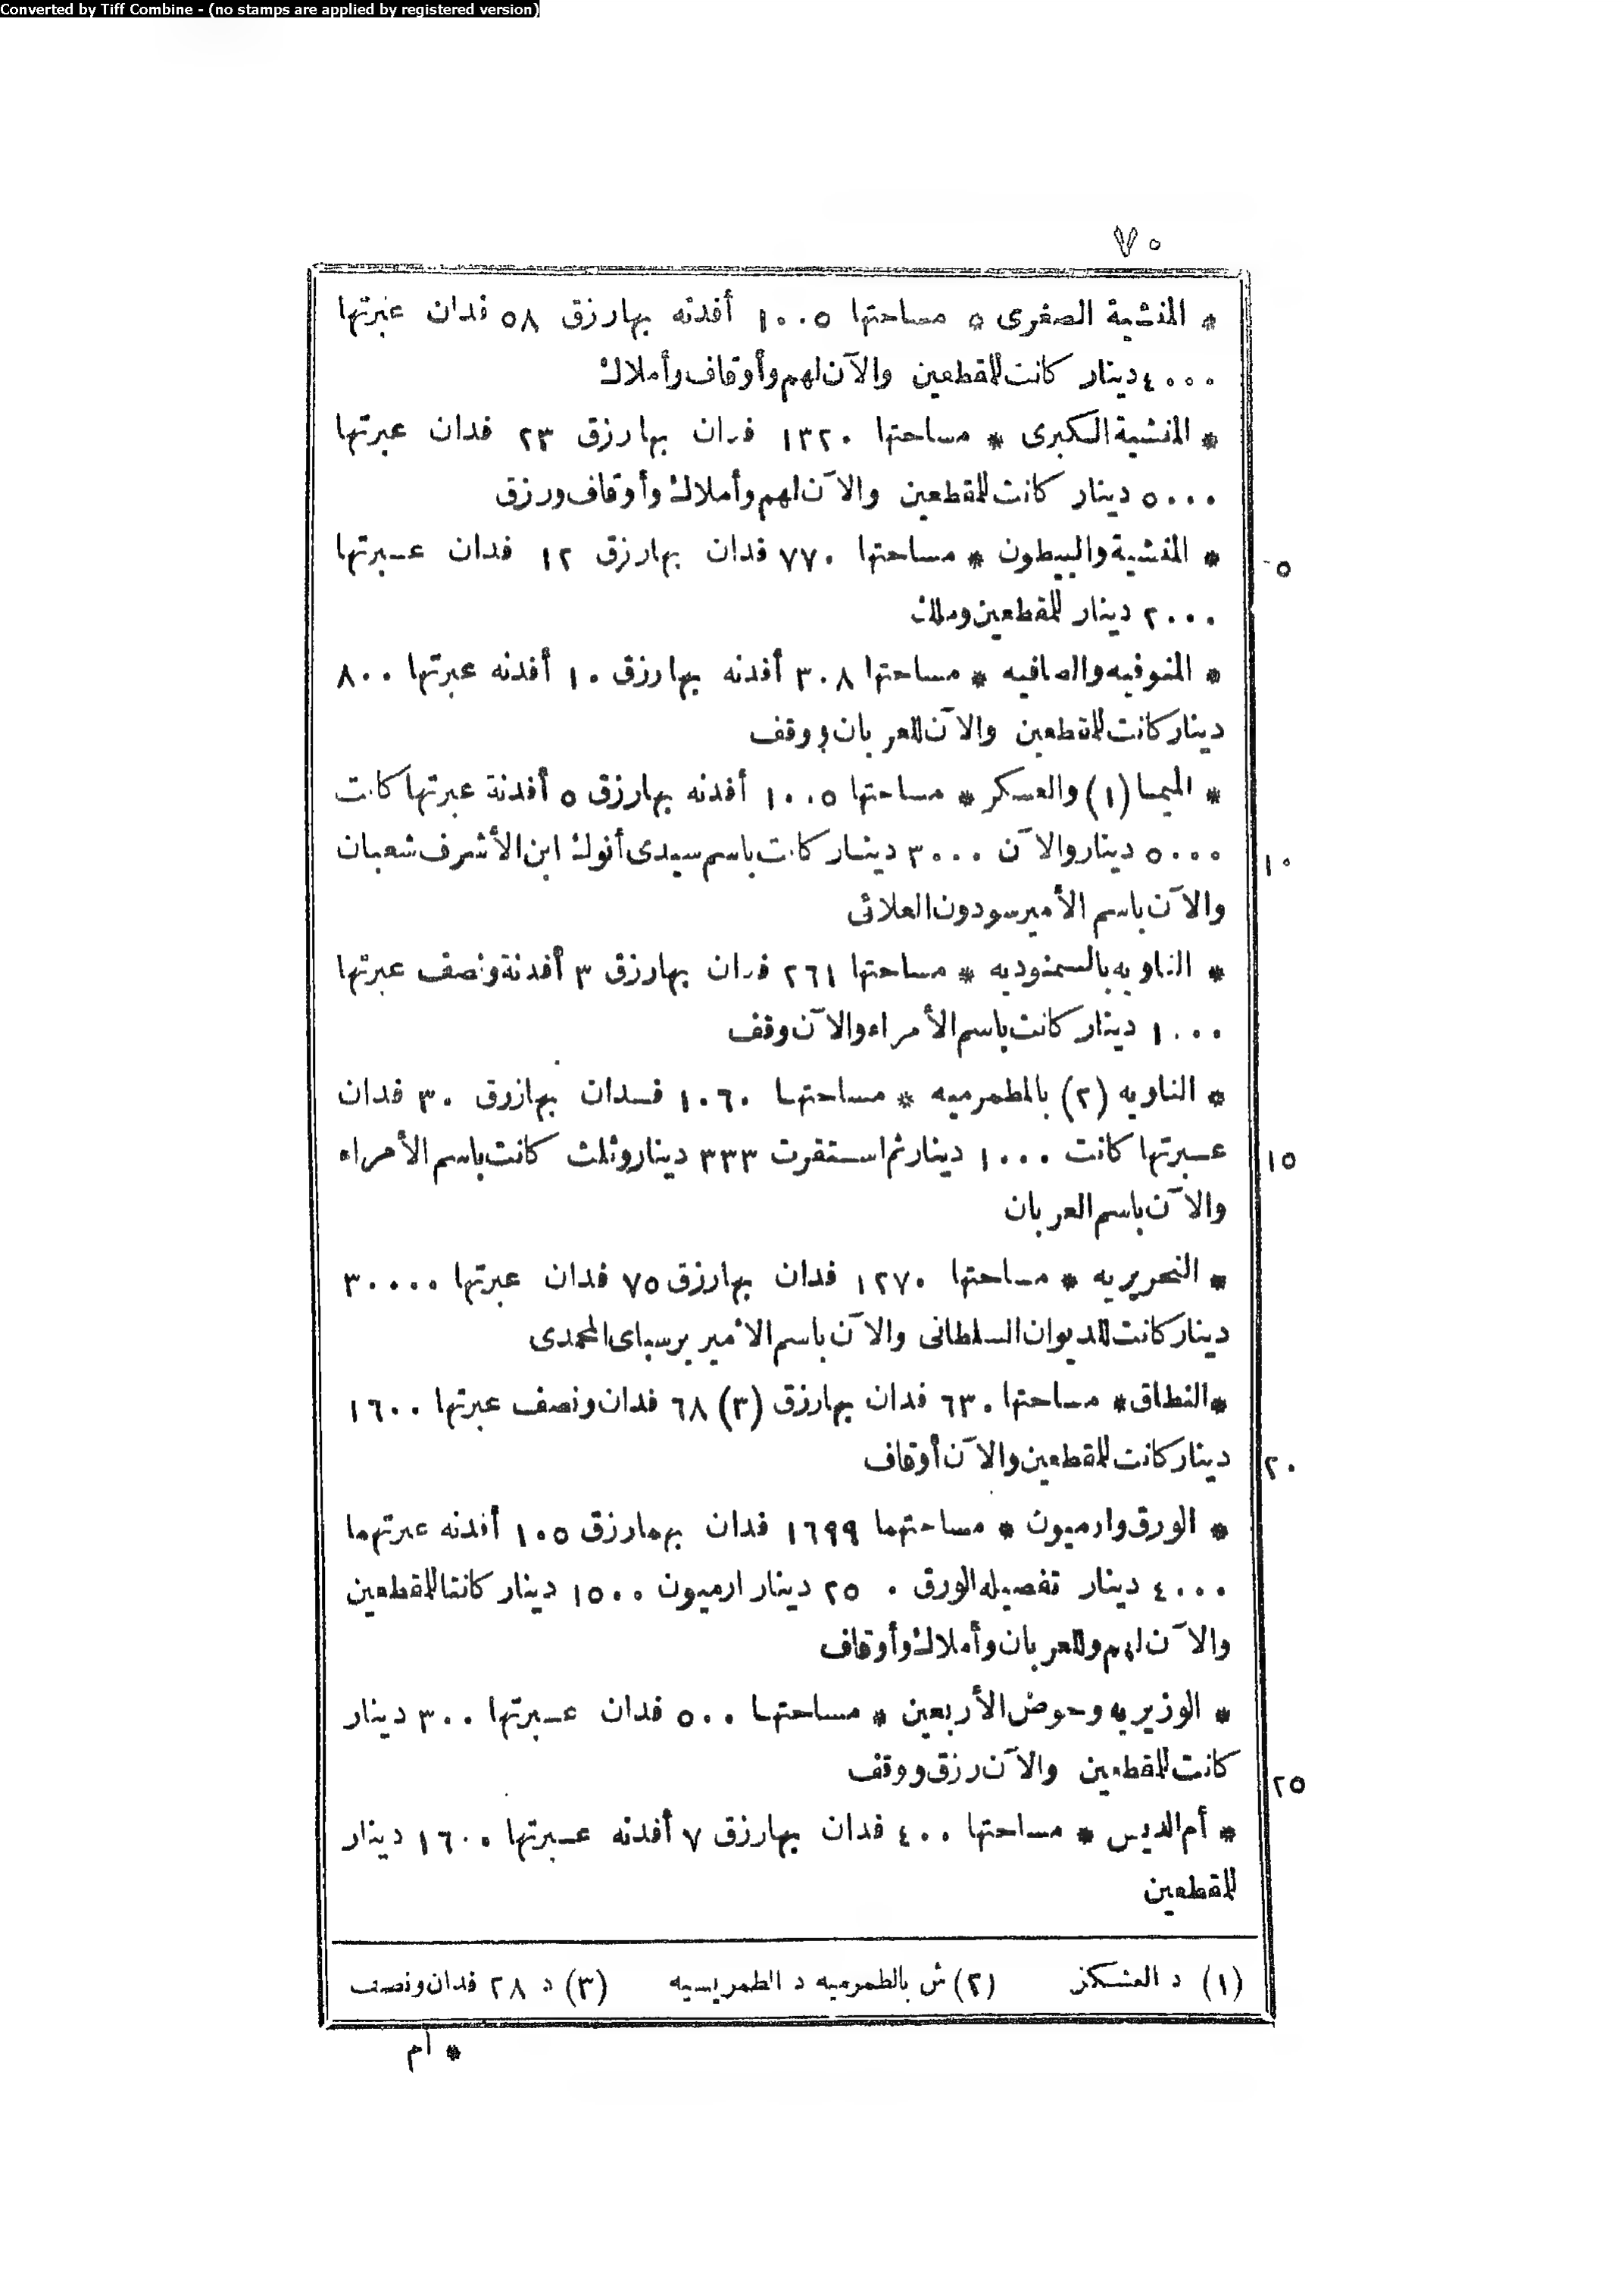 Converted by Tiff Combine - (no stamps are applied by registered version)
٧٠
* المنشية الصغرى * مساحتها ١٠٠٥ أفدنه بها رزق ٥٨ فدان عبرتها
٤٠٠٠ دينار كانت للمقطعين والآن لهم وأوقاف وأملاك
* المنشية الكبرى * مساحتها ١٣٢٠ فدان بها رزق ٢٣ فدان عبرتها
٥٠٠٠ دينار كانت للمقطعين والآن لهم وأملاك وأوقاف ورزق
* المنشية والبيطون * مساحتها ٧٧٠ فدان بها رزق ١٢ فدان عبرتها
٥
٢٠٠٠ دينار للمقطعين وملك
* المنوفيه والصافيه * مساحتها ٣٠٨ أفدنه بها رزق ١٠ أفدنه عبرتها ٨٠٠
دينار كانت للمقطعين والآن للعربان ووقف
* الميما (١) والعسكر * مساحتها ١٠٠٥ أفدنه بها رزق ٥ أفدنة عبرتها كانت
٥٠٠٠ دينار والآن ٣٠٠٠ دينار كانت باسم سيدى أنوك ابن الأشرف شعبان
١٠
والآن باسم الأمير سودون العلائى
* الناويه بالسمنوديه * مساحتها ٢٦١ فدان بها رزق ٣ أفدنة ونصف عبرتها
١٠٠٠ دينار كانت باسم الأمراء والآن وقف
* الناويه (٢) بالطمرميه * مساحتها ١٠٦٠ فدان بها رزق ٣٠ فدان
عبرتها كانت ١٠٠٠ دينار ثم استقرت ٣٣٣ دينار وثلث كانت باسم الأمراء
١٥
والآن باسم العربان
* النحريريه * مساحتها ١٢٧٠ فدان بها رزق ٧٥ فدان عبرتها ٣٠٠٠٠
دينار كانت للديوان السلطانى والآن باسم الأمير برسباى المحمدى
* النطاق * مساحتها ٦٣٠ فدان بها رزق (٣) ٦٨ فدان ونصف عبرتها ١٦٠٠
دينار كانت للمقطعين والآن أوقاف
٢٠
* الورق وارميون * مساحتهما ١٦٩٩ فدان بهما رزق ١٠٥ أفدنه عبرتهما
٤٠٠٠ دينار تفصيله الورق ٢٥٠ دينار ارميون ١٥٠٠ دينار كانتا للمقطعين
والآن لهم وللعربان وأملاك وأوقاف
* الوزيريه وحوض الأربعين * مساحتها ٥٠٠ فدان عبرتها ٣٠٠ دينار
كانت للمقطعين والآن رزق ووقف
٢٥
* أم الديس * مساحتها ٤٠٠ فدان بها رزق ٧ أفدنه عبرتها ١٦٠٠ دينار
للمقطعين
(١) د العشكز (٢) ش بالطمرميه د الطمريسيه (٣) د ٢٨ فدان ونصف
* أم